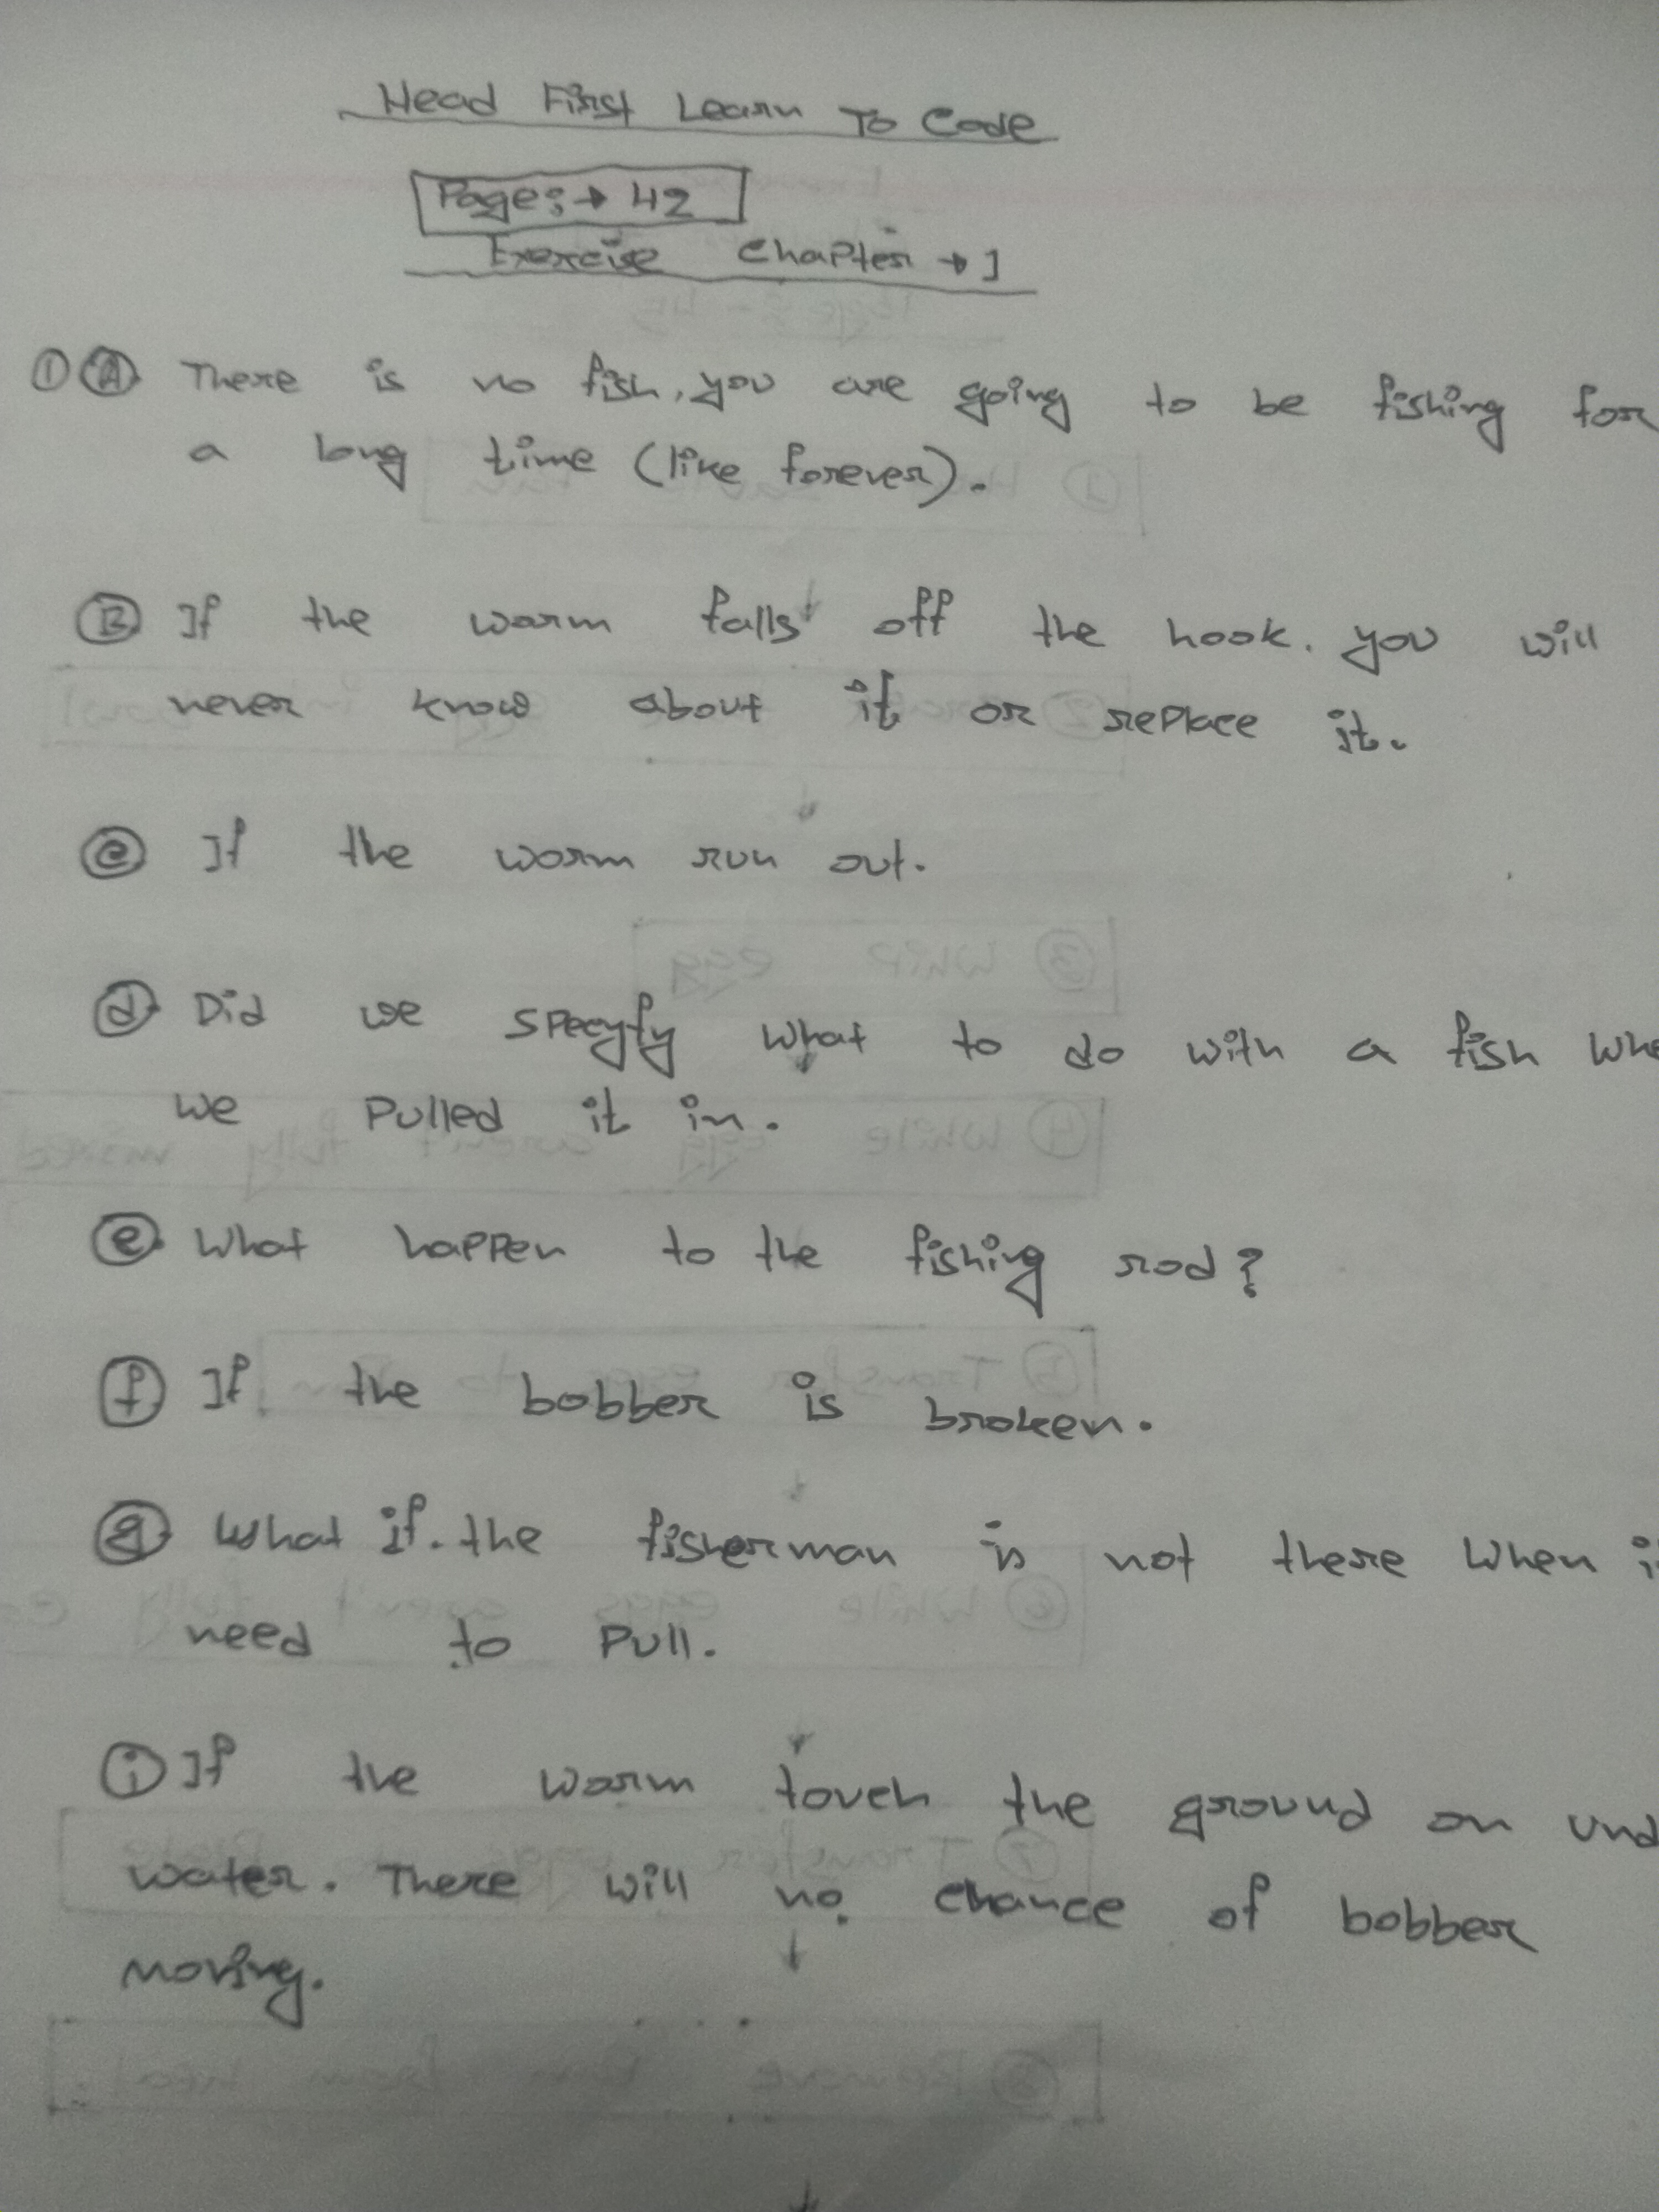 Head First Learn To Code
Page:→ 42
Exercise Chapter → 1
① Ⓐ There is no fish, you are going to be fishing for
a long time (like forever).
Ⓑ If the warm falls off the hook. you will
never know about it or replace it.
ⓒ If the worm run out.
ⓓ Did we specyfy what to do with a fish
we pulled it in.
ⓔ What happen to the fishing rod?
ⓕ If the bobber is broken.
ⓖ What if the fisherman is not there when
need to pull.
ⓘ If the warm touch the ground on
water. There will no chance of bobber
moving.